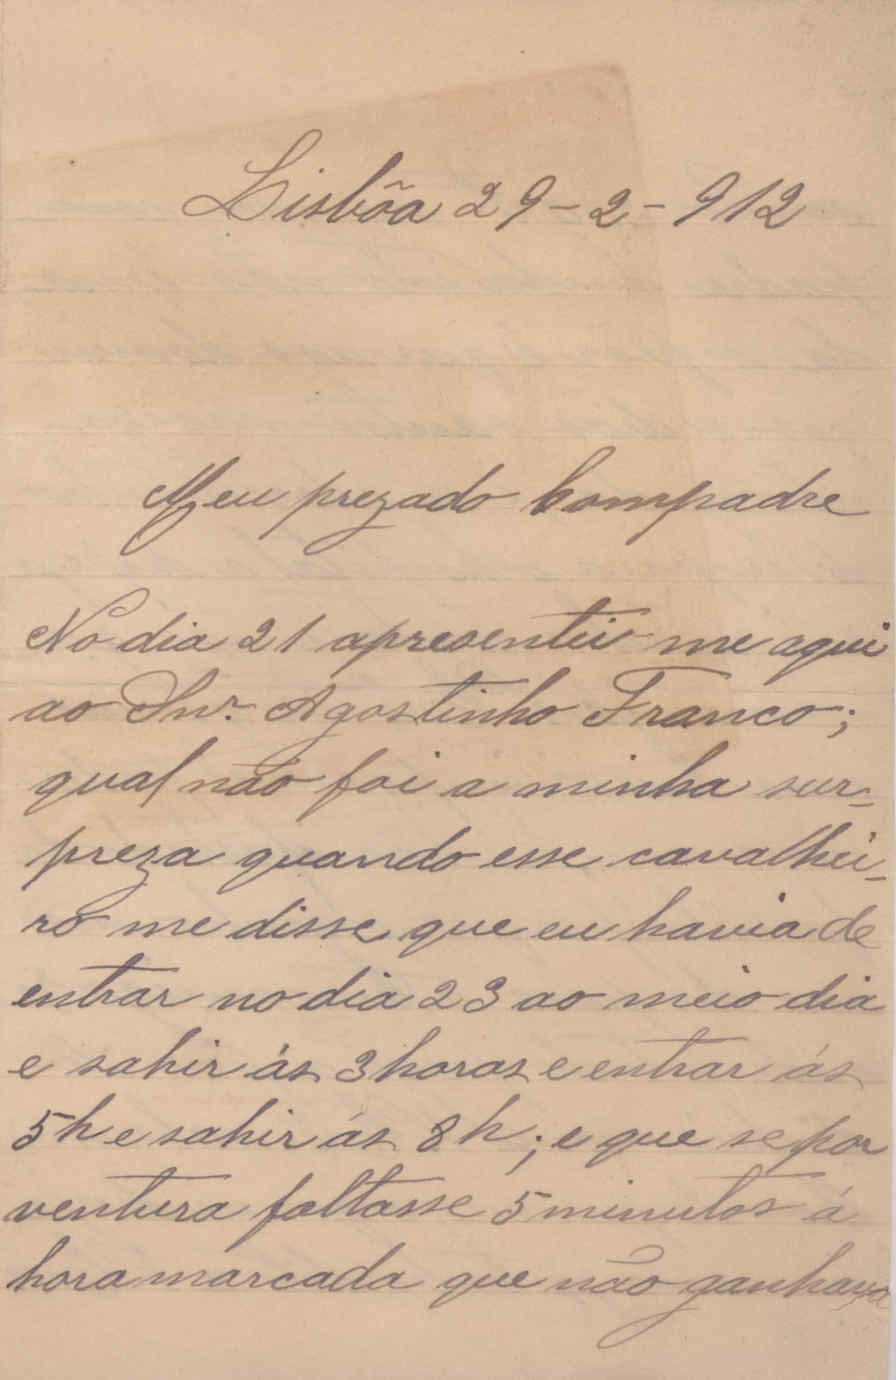 Lisbôa 29-2-912
Meu prezado Compadre
No dia 21 apresentei-me aqui
ao Snr. Agostinho Franco;
qual não foi a minha sur-
preza quando esse cavalhei-
ro me disse que eu havia de
entrar no dia 23 ao meio dia
e sahir ás 3 horas e entrar ás
5 h e sahir ás 8 h; e que se por
ventura faltasse 5 minutos á
hora marcada que não ganhava